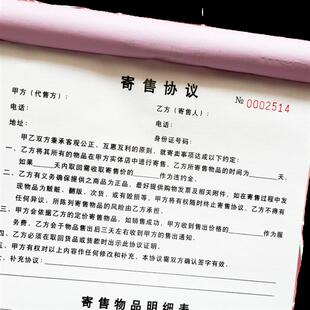 寄售协议
№ 0002514
甲方（代售方）： 乙方（寄售人）：
电话： 电话：
地址： 身份证号码：
甲乙双方秉承客观公正、互惠互利的原则，就寄卖事项达成以下约定：
一、乙方将其所有的物品在甲方实体店中进行寄售，乙方所寄售物品的时间为 天，
如果 天内取回需收取寄售价的 作为违约金。
二、乙方有义务确保提供之商品为正品，最好提供购物发票及相关附件，如在寄售过程中发
现物品为贼脏、翻版、次货，或有毁损等，甲方将有权随时终止寄售协议，乙方不得有
任何异议，所陈列寄售物品的风险由乙方承担。
三、甲方会依据乙方的定价寄售物品，如销售成功，甲方收到出售价格的 作为服
务费，乙方会于物品售出后三天左右收到甲方的售出通知。
四、乙方必须在取回货品或货款时出示此协议证明。
五、甲方有权对以上内容作任何修改和补充，本协议需双方确认签字有效。
六、补充协议：
寄售物品明细表